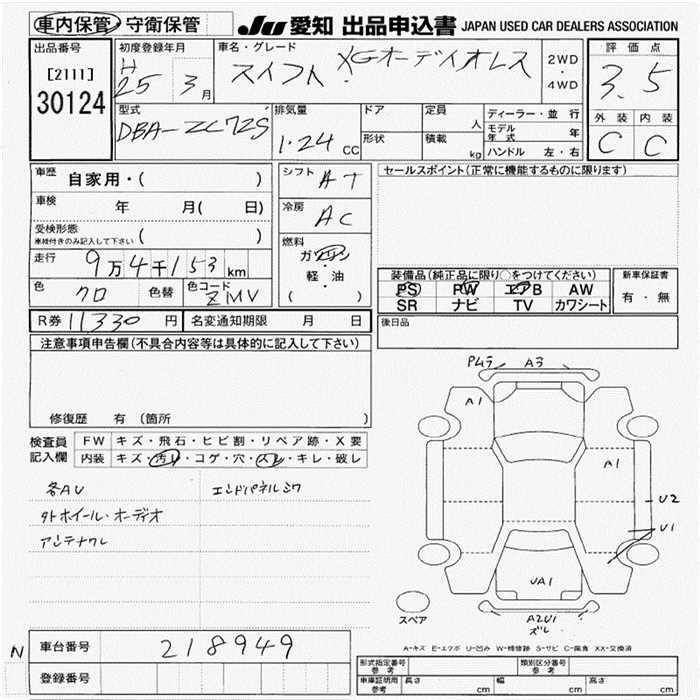 車内保管・守衛保管
JU 愛知 出品申込書 JAPAN USED CAR DEALERS ASSOCIATION
出品番号
[2111]
30124
初度登録年月
H
25 3月
車名・グレード
スイフト XGオーディオレス
2WD
・
4WD
評価点
3.5
外装 内装
C C
型式
DBA-ZC72S
排気量
1.24 cc
ドア
形状
定員
人
積載
kg
ディーラー・並行
モデル年式 年
ハンドル 左・右
車歴
自家用・( )
車検
年 月( 日)
受検形態
車検付きのみ記入して下さい ( )
走行
9万4千153km
色
クロ
色替
色コード
ZMV
シフト
AT
冷房
AC
燃料
ガソリン
・
軽・油
( )
セールスポイント(正常に機能するものに限ります)
装備品(純正品に限り○をつけてください)
PS PW エアB AW
SR ナビ TV カワシート
新車保証書
有・無
R券 11330円
名変通知期限 月 日
後日品
注意事項申告欄(不具合内容等は具体的に記入して下さい)
修復歴 有(箇所 )
検査員
記入欄
FW キズ・飛石・ヒビ割・リペア跡・X要
内装 キズ・汚レ・コゲ・穴・スレ・キレ・破レ
各AU
タトホイール・オーディオ
アンテナクレ
エンドパネルシワ
Pムラ
Aヨ
A1
A1
U2
U1
UA1
A2U1
ズレ
スペア
A-キズ E-エクボ U-凹み W-補修跡 S-サビ C-腐食 XX-交換済
N
車台番号
218949
登録番号
形式指定番号
参考
類別区分番号
参考
車庫証明用
参考
長さ cm
幅 cm
高さ cm